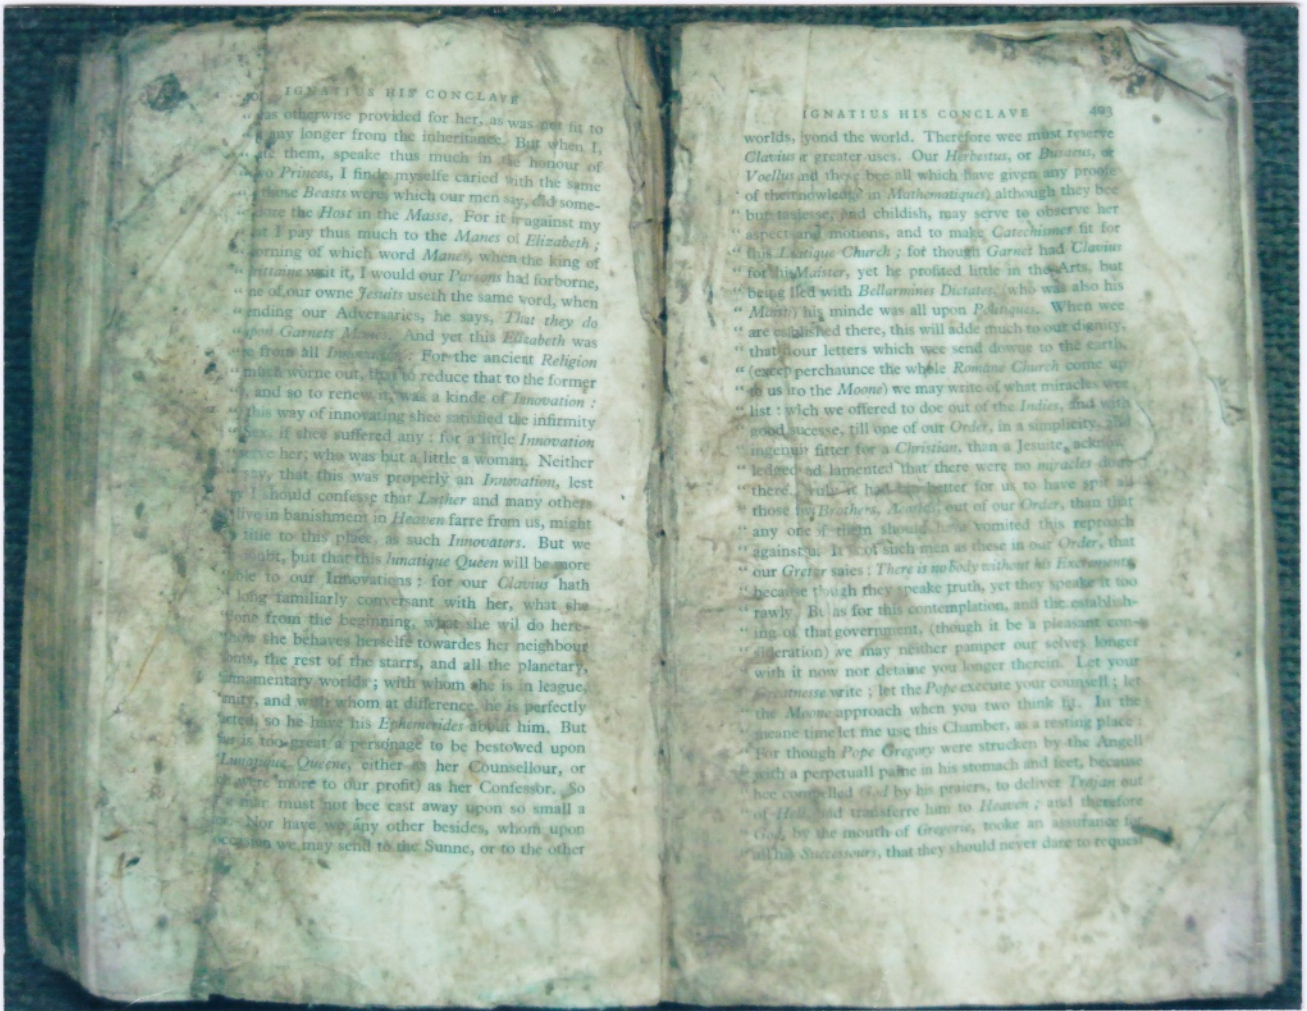 IGNATIUS HIS CONCLAVE
was otherwise provided for her, as was not fit to
any longer from the inheritance. But when I,
them, speake thus much in the honour of
Princes, I finde myselfe caried with the same
those Beasts were, which our men say, did some-
the Host in the Masse. For it is against my
that I pay thus much to the Manes of Elizabeth ;
scorning of which word Manes, when the king of
Brittaine writ it, I would our Parsons had forborne,
one of our owne Jesuits useth the same word, when
our Adversaries, he says, That they do
upon Garnets Manes. And yet this Elizabeth was
from all Innovation : For the ancient Religion
much worne out, that to reduce that to the former
, and so to renew it, was a kinde of Innovation :
this way of innovating shee satisfied the infirmity
Sex, if shee suffered any : for a little Innovation
serve her, who was but a little a woman. Neither
say, that this was properly an Innovation, lest
I should confesse that Luther and many others
live in banishment in Heaven farre from us, might
title to this place, as such Innovators. But we
doubt, but that this lunatique Queen will be more
to our Innovations : for our Clavius hath
long familiarly conversant with her, what she
done from the beginning, what she wil do here-
how she behaves herselfe towardes her neighbour
the rest of the starrs, and all the planetary,
firmamentary worlds ; with whom she is in league,
amity, and with whom at difference, he is perfectly
so he have his Ephemerides about him. But
is too great a personage to be bestowed upon
Lunatique Queene, either as her Counsellour, or
were more to our profit) as her Confessor. So
a man must not bee cast away upon so small a
Nor have we any other besides, whom upon
occasion we may send to the Sunne, or to the other
IGNATIUS HIS CONCLAVE 403
worlds, yond the world. Therefore wee must reserve
Clavius greater uses. Our Herbestus, or Busaeus, or
Voellus nd these bee all which have given any proofe
of their nowledge in Mathematiques) although they bee
" but tastlesse, and childish, may serve to observe her
" aspects and motions, and to make Catechismes fit for
" this Lunatique Church ; for though Garnet had Clavius
" for his Maister, yet he profited little in the Arts, but
" being lled with Bellarmines Dictates, (who was also his
" his minde was all upon Politiques. When wee
" are established there, this will adde much to our dignity,
" that our letters which wee send downe to the earth,
" (except perchaunce the whole Romane Church come up
" to us to the Moone) we may write of what miracles wee
" list : wich we offered to doe out of the Indies, and with
" good sucesse, till one of our Order, in a simplicity, and
" fitter for a Christian, than a Jesuite, acknow-
" ledged ad lamented that there were no miracles done
" there. ruly it had bin better for us to have spit all
" those Brothers, out of our Order, than that
" any one of them should have vomited this reproach
" against u. It is of such men as these in our Order, that
" our Gretzer saies : There is no body without his Excrements,
" because though they speake truth, yet they speake it too
" rawly. But as for this contemplation, and the establish-
" ing of that government, (though it be a pleasant con-
" sideration) we may neither pamper our selves longer
" with it now nor detaine you longer therein. Let your
" Greatnesse write ; let the Pope execute your counsell ; let
" the Moone approach when you two think fit. In the
" meane time let me use this Chamber, as a resting place :
" For though Pope Gregory were strucken by the Angell
" with a perpetuall paine in his stomach and feet, because
" hee compelled God by his praiers, to deliver Trajan out
" of Hell, and transferre him to Heaven ; and therefore
" God, by the mouth of Gregorie, tooke an assurance for
" all his Successours, that they should never dare to request